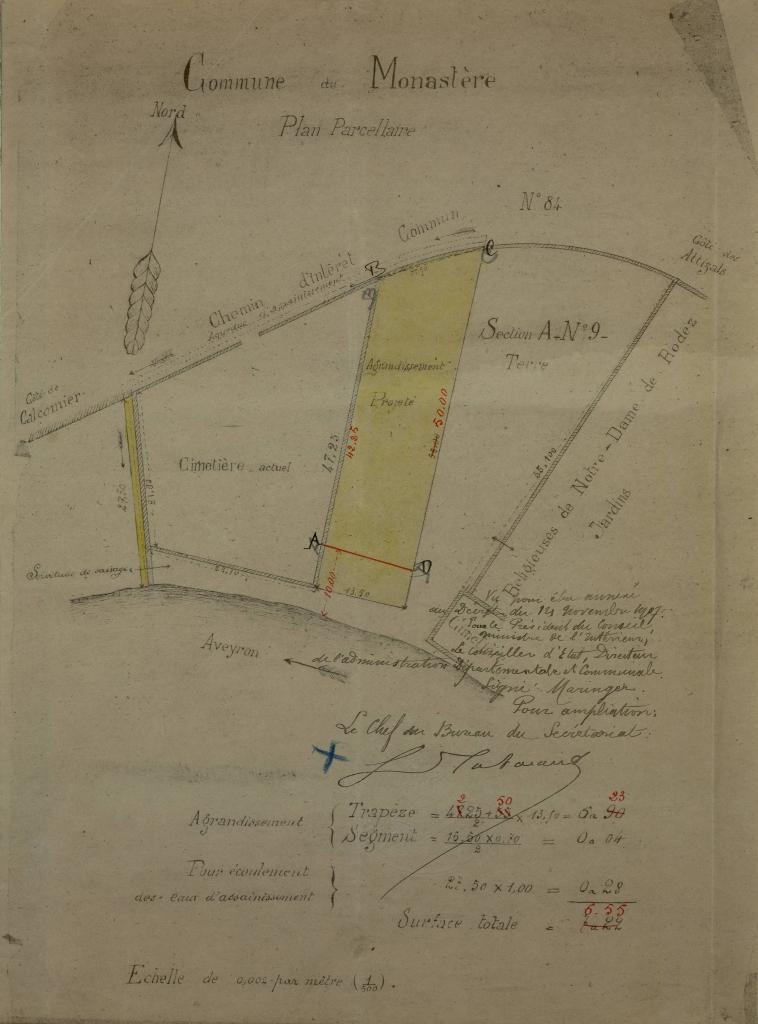 Commune du Monastère
Nord
Plan Parcellaire
N° 84
Chemin d'Intérêt Commun
Aqueduc d'assainissement
Côté des
Attizals
B
C
Côté de
Calcomier
Section A-N°9-
Terre
Agrandissement
Projeté
Cimetière actuel
47.25
42.25
50.00
27.50
21.00
55.100
Religieuses de Notre-Dame de Rodez
Jardins
A
D
10.00
13.50
Servitude de passage
Aveyron
Vu pour être annexé
au Décret du 14 novembre 1907:
Pour le Président du Conseil
ministre de l'Intérieur,
Le Conseiller d'Etat, Directeur
de l'administration Départementale et Communale.
Signé: Maringer.
Pour ampliation:
Le Chef du Bureau du Secrétariat:
Agrandissement
Trapèze = 2 50 x 13,50 = 6a 23 90
Segment = 15,50 x 0,70 / 2 = 0a 04
Pour écoulement
des eaux d'assainissement
27,50 x 1,00 = 0a 28
6.55
Surface totale =
Echelle de 0,002 par mètre (1/500).